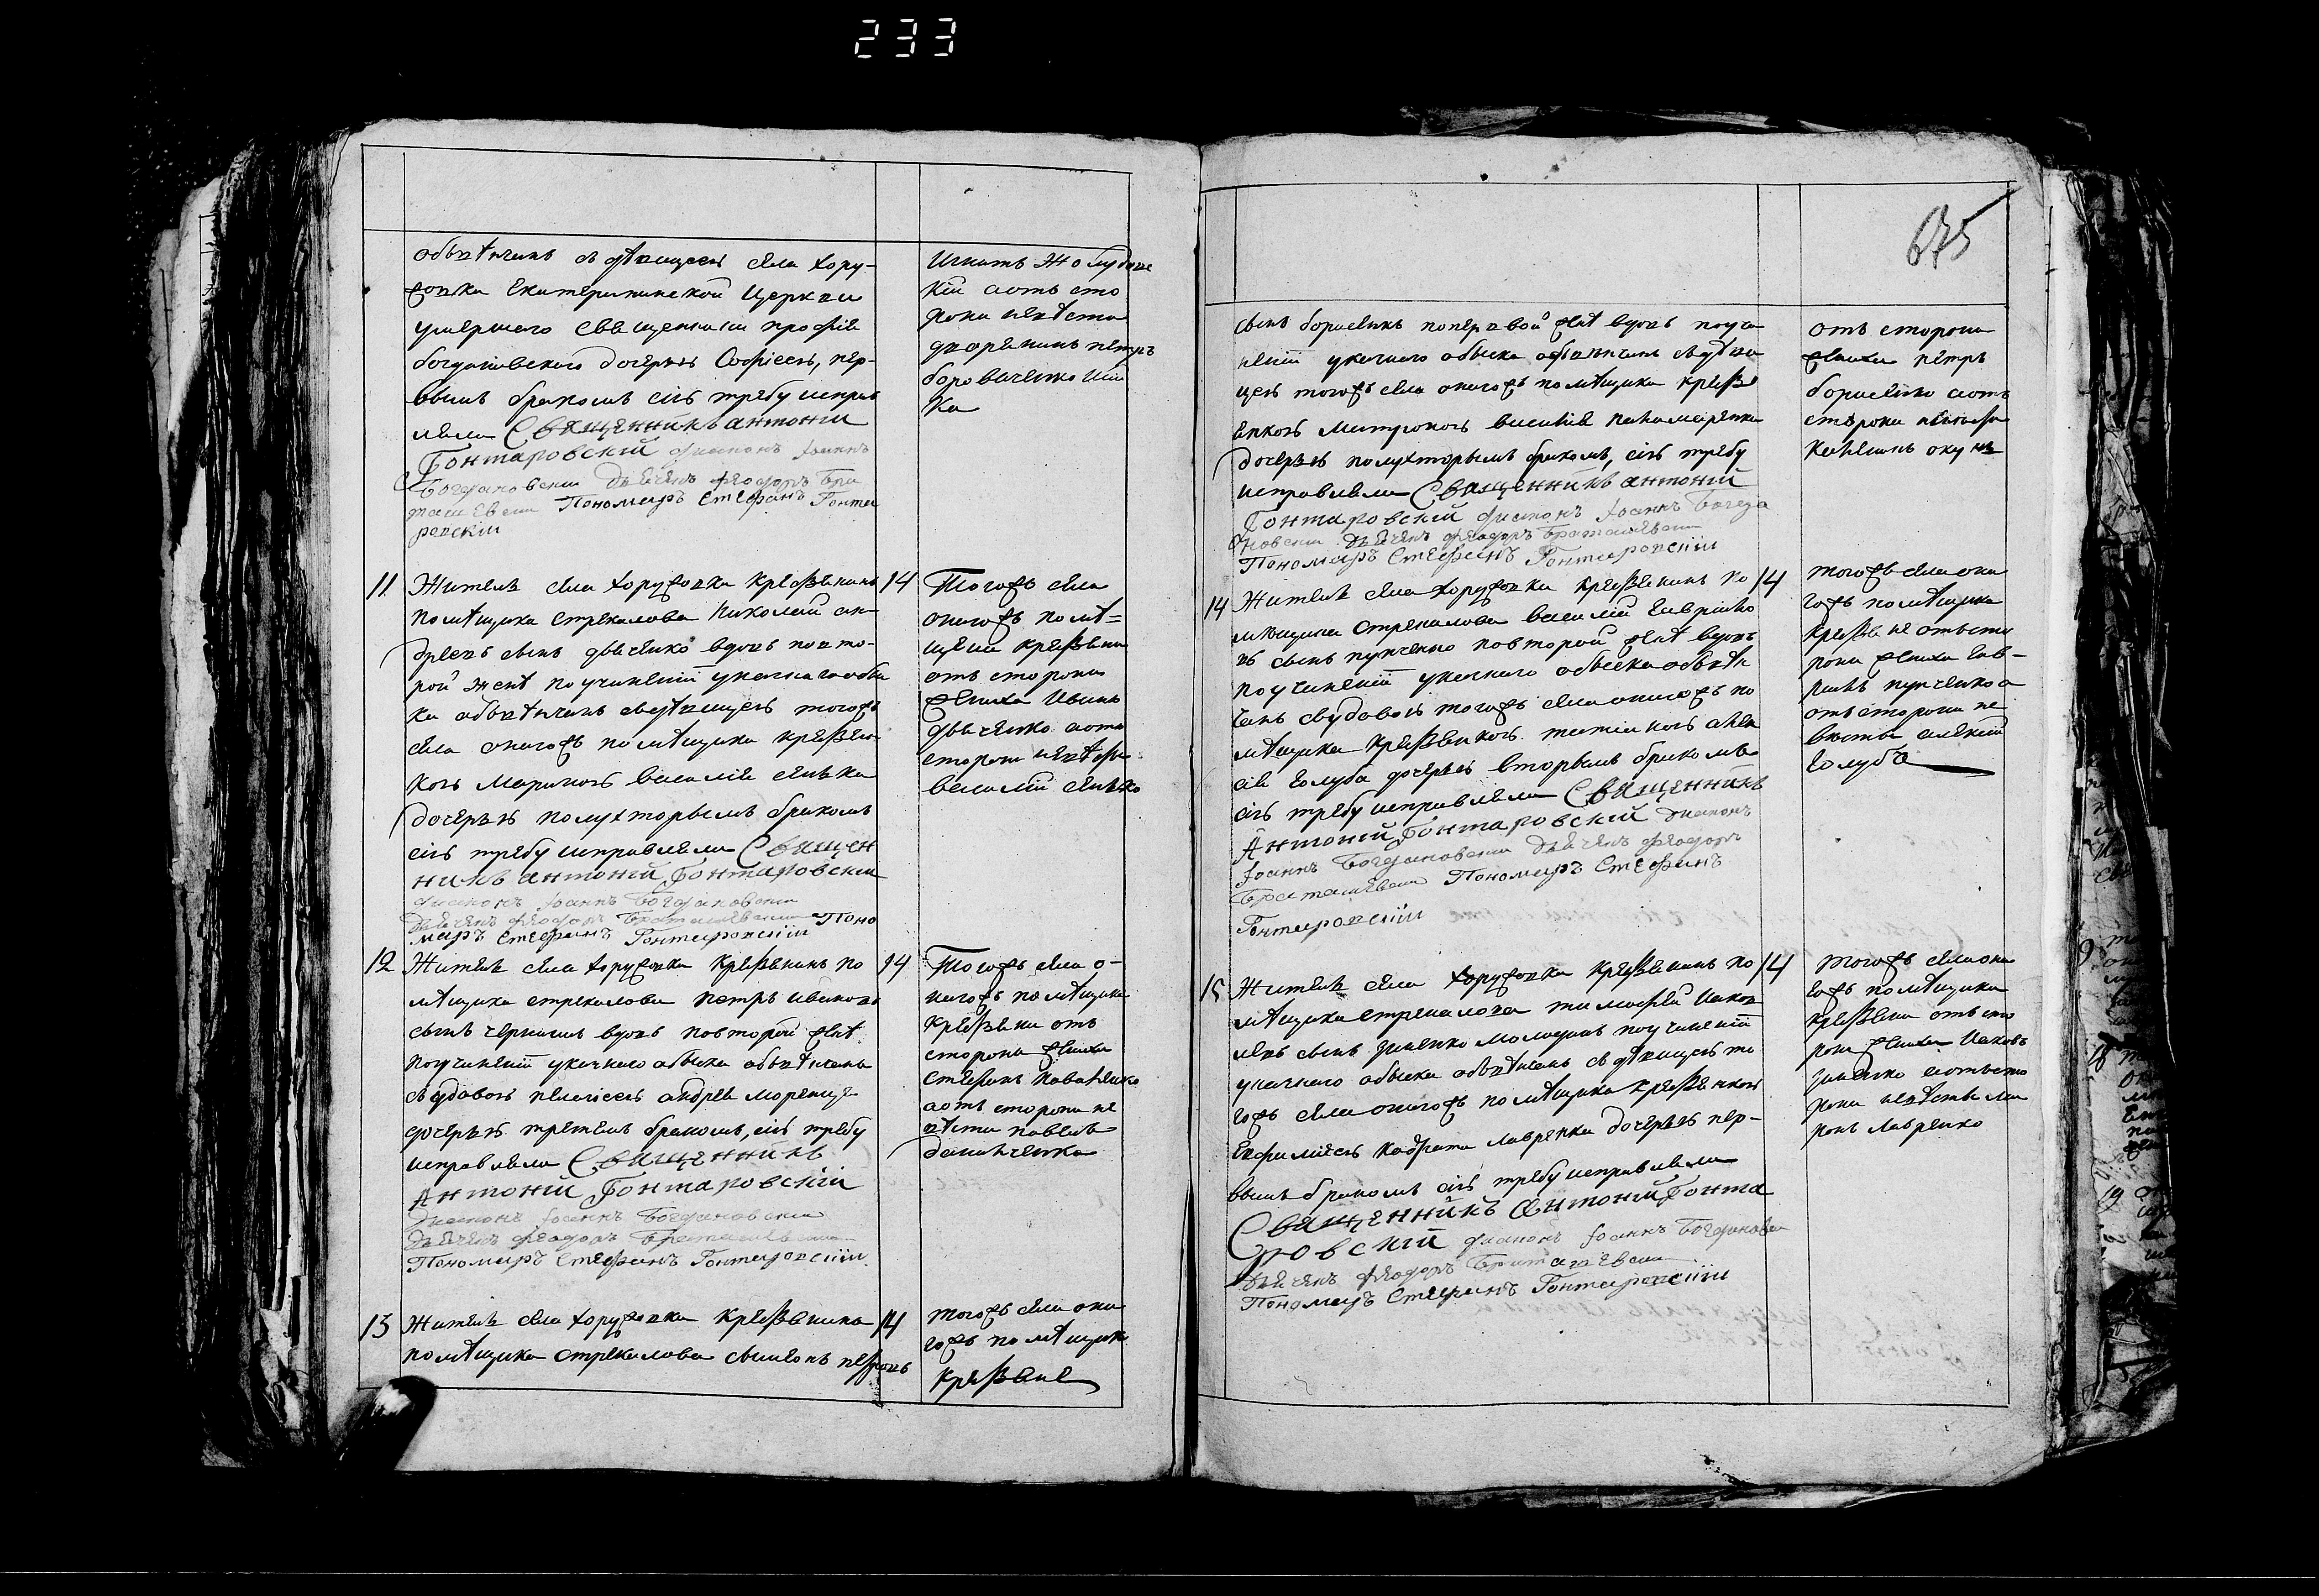 233
обвѣнчанъ съ дѣвицею села хору-
жовки Екатерининской Церкви
умершаго священника
Богдановскаго дочерью Софіею, пер-
вымъ бракомъ сію требу исправ
ляли Священникъ антоній
Гонтаровскій диаконъ Іоаннъ
Богдановскій Дьячекъ феодоръ Бра
ташевскій Пономаръ Стефанъ Гонта
ровскій
Игнатъ
кій аотъ сто
роны невѣсты
дворянинъ петръ
11 Жителъ села хоружовки Крестьянинъ 14
помѣщика стрекалова Николай ан-
дреевъ сынъ дяченко вдовъ повто-
рой женѣ поучиненіи указнаго обыс
ка обвѣнчанъ съдѣвицею тогожъ
села оногожъ помѣщика крестьян
кою Мариною василія сенька
дочерью полуторымъ бракомъ
сію требу исправляли Священ
никъ антоній Гонтаровскій
диаконъ Іоаннъ Богдановскій
Дьячекъ феодоръ Браташевскій Поно
маръ Стефанъ Гонтаровскій
Тогожъ села
оногожъ помѣ=
щика крестьяни
отъ стороны
жениха Иванъ
дяченко аотъ
стороны невѣсты
василій сенько
12 Жителъ села хоружовки Крестьянинъ по 14
мѣщика стрекалова петръ ивановъ
сынъ вдовъ повторой женѣ
поучиненіи указнаго обыска обвѣнчанъ
съ вдовою пелагіею андрея
дочерью третимъ бракомъ, сію требу
исправляли Священникъ
Антоній Гонтаровскій
Диаконъ Іоаннъ Богдановскій
Дьячекъ феодоръ Браташевскій
Пономаръ Стефанъ Гонтаровскій
Тогожъ села о-
ногожъ помѣщика
крестьяни отъ
стороны жениха
стефанъ
аотъ стороны не
вѣсты павелъ
13 Жителъ села хоружовки Крестьянинъ 14
помѣщика стрекалова сымеонъ петровъ
тогожъ села оно
гожъ помѣщика
крестьяне
675
сынъ борисенко поперввой женѣ вдовъ поучи
неніи указнаго обыска обвѣнчанъ съдѣви
цею тогожъ села оногожъ помѣщика крестья
нкою Митроною василія панамаренка
дочерью полуторымъ бракомъ, сію требу
исправляли Священникъ антоній
Гонтаровскій диаконъ Іоаннъ Богда
новскій Дьячекъ феодоръ Браташевскій
Пономаръ Стефанъ Гонтаровскій
отъ стороны
жениха петръ
борисенко аотъ
стороны невѣсты
14 Жителъ села хоружовки Крестьянинъ по 14
мѣщика стрекалова василій гаврило
въ сынъ пупченко повторой женѣ вдовъ
поучиненіи указнаго обыска обвѣн
чанъ свудовою тогожъ села оногожъ по
мѣщика крестьянкою татіаною алек
сія голуба дочерью вторымъ бракомъ
сію требу исправляли Священникъ
Антоній Гонтаровскій Диаконъ
Іоаннъ Богдановскій Дьячекъ феодоръ
Браташевскій Пономаръ Стефанъ
Гонтаровскій
тогожъ села оно
гожъ помѣщика
крестьяне отъсто
роны жениха гав-
рилъ пупченко а
отъ стороны не
вѣсты алексій
голубъ
15 Жителъ села хоружовки Крестьянинъ по 14
мѣщика стрекалова тимофей иаков
левъ сынъ зиненко молодикъ поучиненіи
указнаго обыска обвѣнчанъ съ дѣвицею то
гожъ села оногожъ помѣщика крестьянкою
Евфиміею кодрата лавренка дочерью пер-
вымъ бракомъ сію требу исправляли
Священникъ Антоній Гонта
ровскій диаконъ Іоаннъ Богдановск
Дьячекъ феодоръ Браташевскій
Пономаръ Стефанъ Гонтаровскій
тогожъ села оно
гожъ помѣщика
крестьяни отъ сто
роны жениха Иаковъ
зиненко аотъсто
роны невѣсты
лавренко